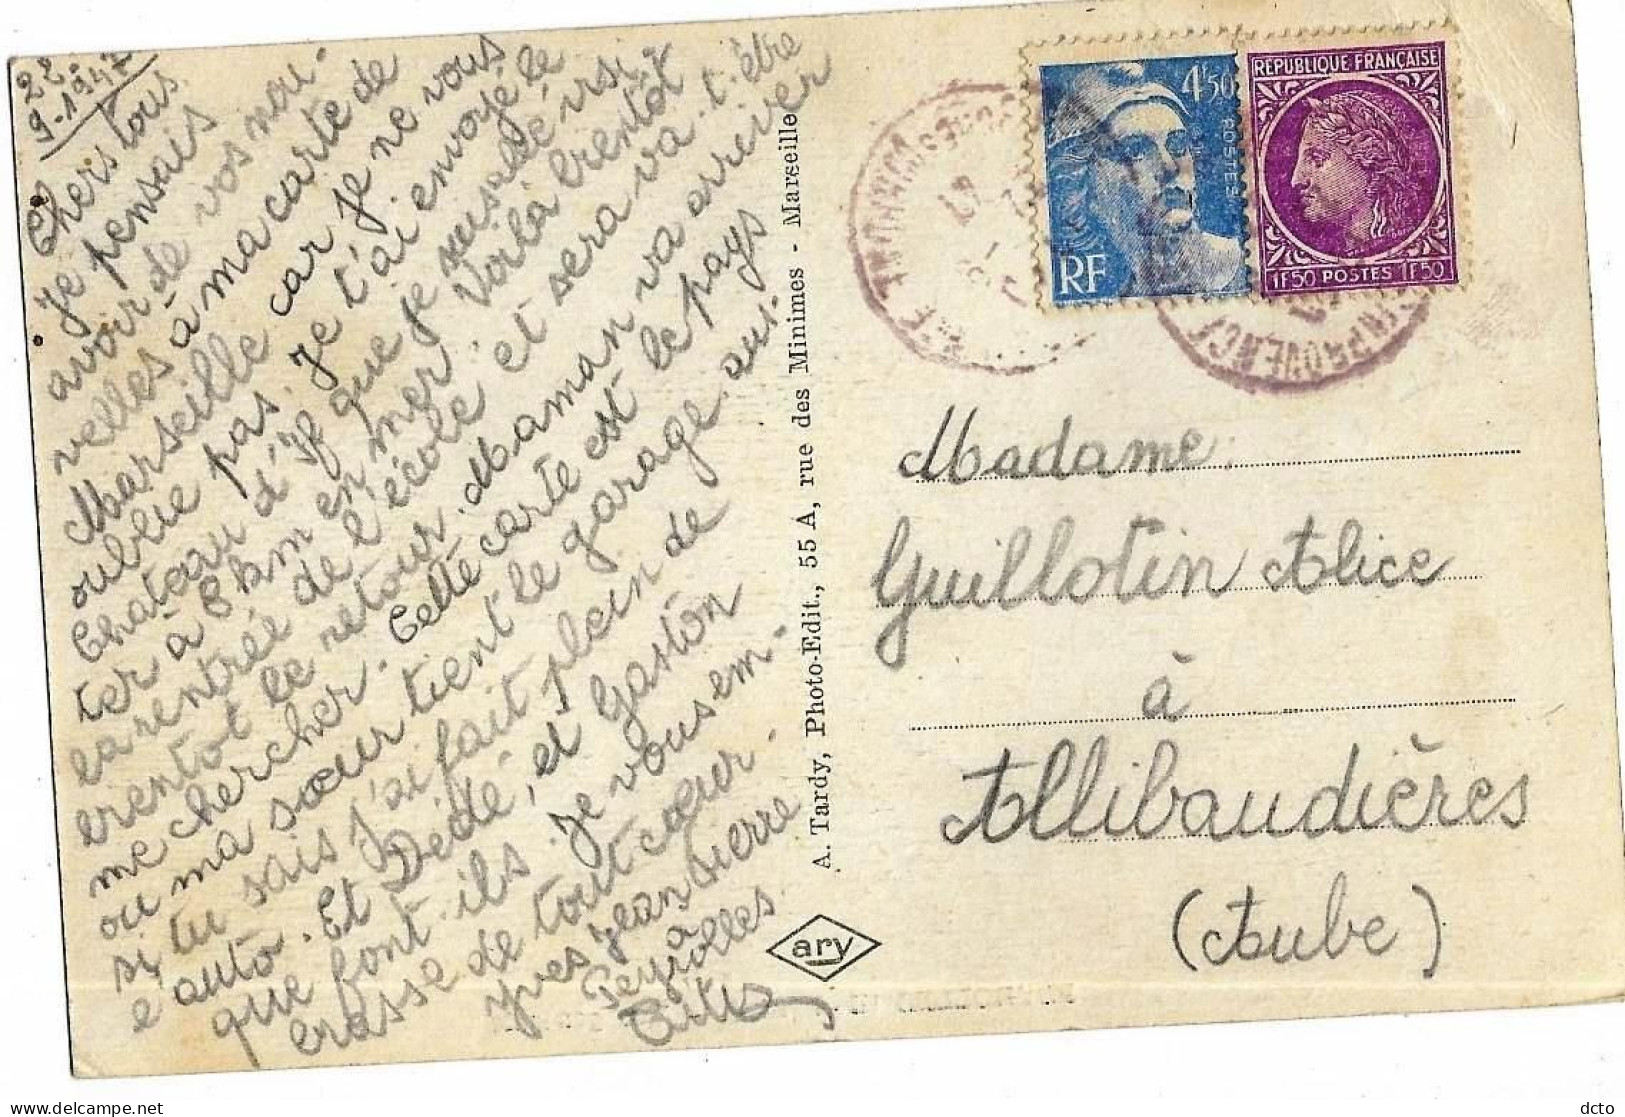 22-
9-1947
Chers tous
Je pensais
avoir de vos nou-
velles à ma carte de
Marseille car je ne vous
oublie pas. Je t'ai envoyé le
Chateau d'If que je suis allé visi-
ter à 8 km en mer. Voilà bientot
la rentrée de l'école et sera va-t-être
bientot le retour. Maman va arriver
me chercher. Cette carte est le pays
ou ma sœur tient le garage. aus-
si tu sais j'ai fait plein de
l'auto. Et Dédé, et Gaston
que font-ils. Je vous em-
brasse de tout cœur.
Yves Jean Pierre
à
Peyrolles
A. Tardy, Photo-Edit., 55 A, rue des Minimes - Marseille
ary
4F50
POSTES
RF
REPUBLIQUE FRANÇAISE
1F50 POSTES 1F50
Madame
Guillotin Alice
à
Allibaudières
(Aube)
dcto